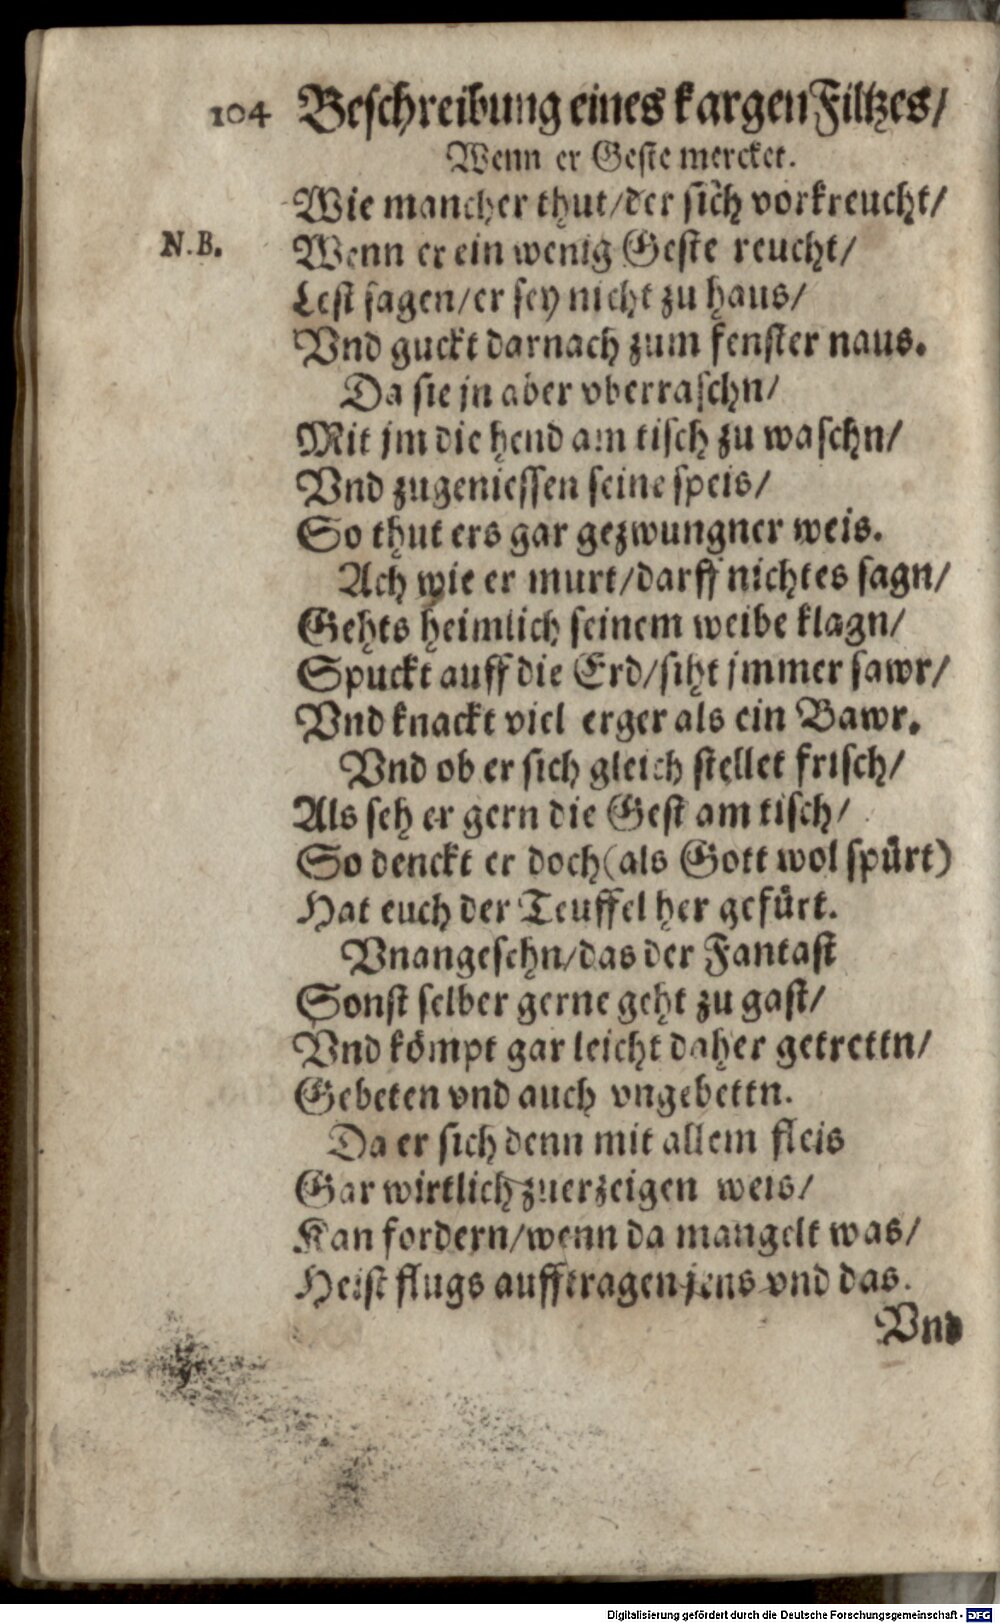 104 Beschreibung eines kargen Filtzes/
Wenn er Geste mercket.
Wie mancher thut/der sich vorkreucht/
N.B. Wenn er ein wenig Geste reucht/
Lest sagen/er sey nicht zu haus/
Vnd guckt darnach zum fenster naus.
Da sie jn aber vberraschn/
Mit jm die hend am tisch zu waschn/
Vnd zugeniessen seine speis/
So thut ers gar gezwungner weis.
Ach wie er murt/darff nichtes sagn/
Gehts heimlich seinem weibe klagn/
Spuckt auff die Erd/siht jmmer sawr/
Vnd knackt viel erger als ein Bawr.
Vnd ob er sich gleich stellet frisch/
Als seh er gern die Gest am tisch/
So denckt er doch (als Gott wol spürt)
Hat euch der Teuffel her gefürt.
Vnangesehn/das der Fantast
Sonst selber gerne geht zu gast/
Vnd kömpt gar leicht daher getrettn/
Gebeten vnd auch vngebettn.
Da er sich denn mit allem fleis
Gar wirtlich zuerzeigen weis/
Kan fordern/wenn da mangelt was/
Heist flugs aufftragen jens vnd das.
Vnd
Digitalisierung gefördert durch die Deutsche Forschungsgemeinschaft - DFG